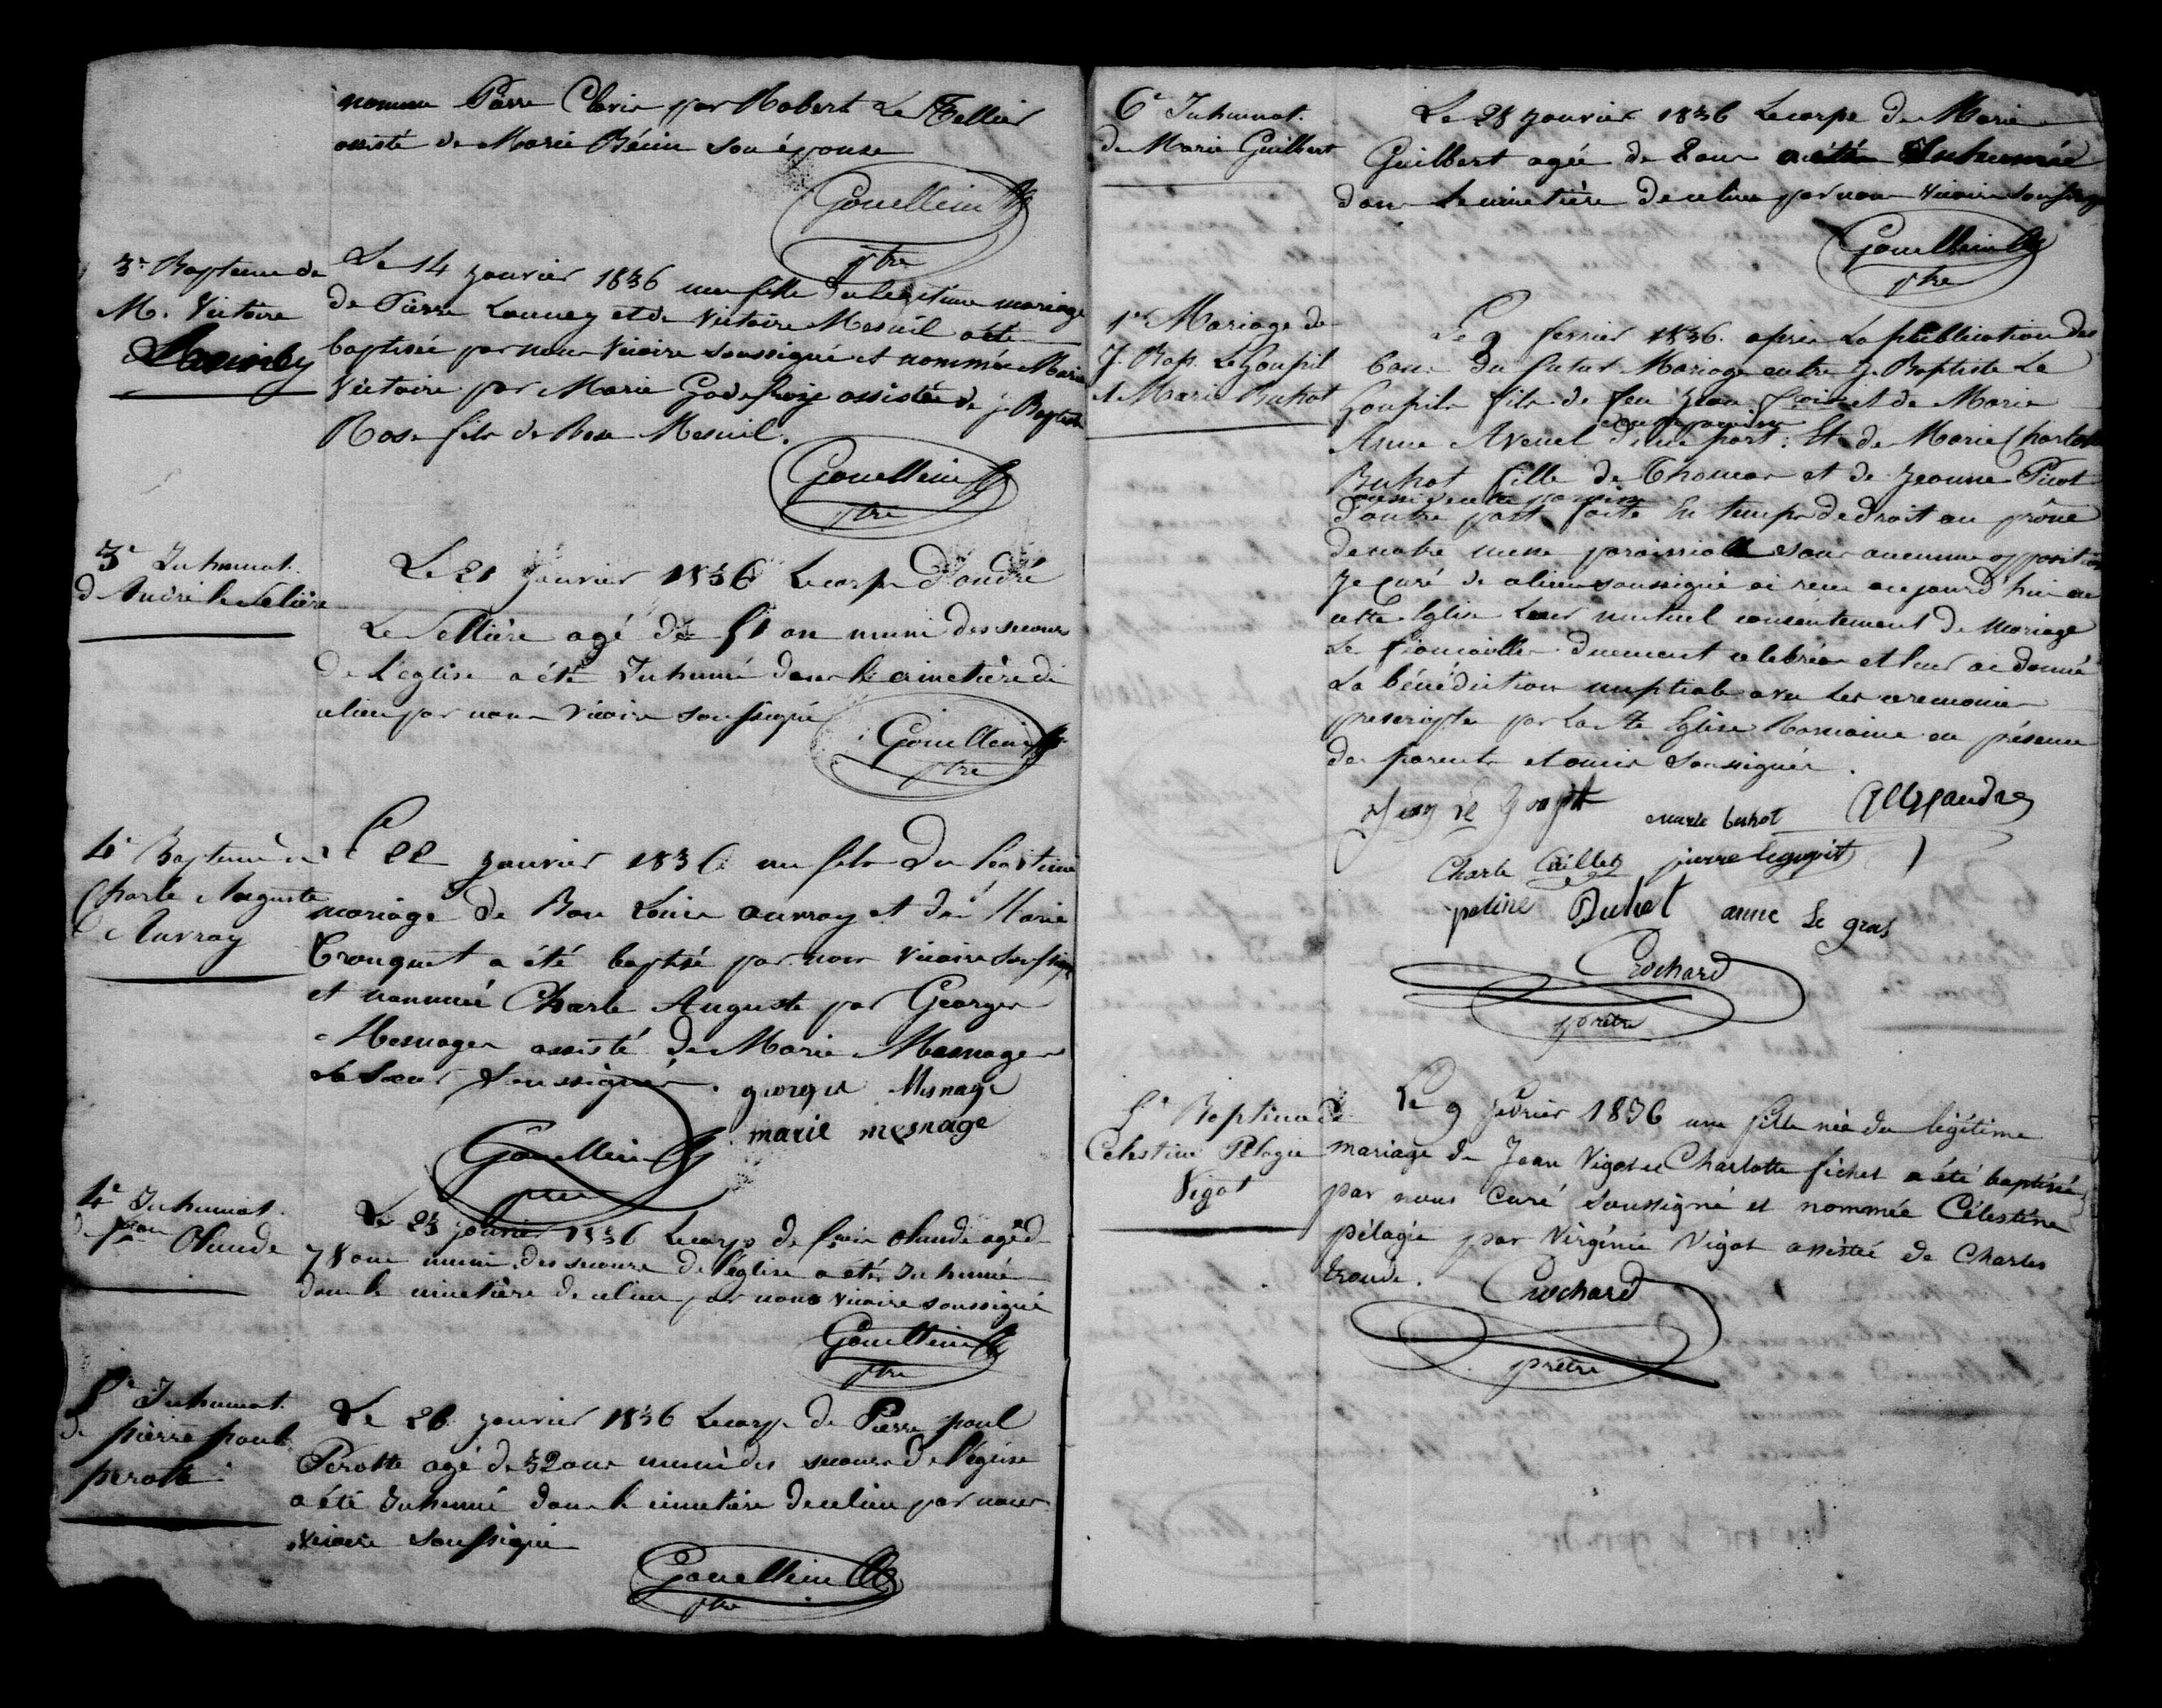 nommé Pierre Clovis par Robert Le Tellier
assisté de Marie Bénin son épouse
Gouellein
ptre
3e Bapteme de
M. Victoire
Launey
Le 14 janvier 1836 une fille du légitime mariage
de Pierre Launey et de Victoire Mesnil a été
baptisée par nous Vicaire soussigné et nommée Marie
Victoire par Marie Godefroy assistée de J. Baptiste
Rose fils de Rose Mesnil.
Gouellein
ptre
3e Inhumat.
d'André le Selière
Le 21 janvier 1836 Le corps d'André
Le Sellière agé de 51 an muni des secours
de l'église a été Inhumé dans le cimetière de
ce lieu par nous Vicaire soussigné
Gouellein
ptre
4e Bapteme de
Charle Auguste
Auvray
Le 22 janvier 1836 un fils du légitime
mariage de Bon Louis auvray et de Marie
Trouquet a été baptisé par nous Vicaire soussigné
et nommé Charle Auguste par Georges
Mesnager assisté de Marie Mesnager
sa Sœur Soussignés.
georges Mesnage
marie mesnage
Gouellein
ptre
4e Inhumat.
de Olande
Le 23 janvier 1836 Le corps de Olande agé de
78 ans muni des secours de l'église a été Inhumé
dans le cimetière de ce lieu par nous Vicaire soussigné
Gouellein
ptre
5e Inhumat.
de pierre paul
perotte
Le 26 janvier 1836 Le corps de Pierre paul
Perotte agé de 32 ans muni des secours de l'église
a été Inhumé dans le cimetière de ce lieu par nous
Vicaire soussigné
Gouellein
ptre
6e Inhumat.
de Marie Guilbert
Le 28 janvier 1836 Le corps de Marie
Guilbert agée de 2 ans a été Inhumée
dans le cimetière de ce lieu par nous Vicaire soussigné
Gouellein
ptre
1er Mariage de
J. Bap. Le Goupil
et Marie Buhot
Le 9 fevrier 1836. après la publication des
bans du futur Mariage entre J. Baptiste Le
Goupil fils de feu Jean et de Marie
Anne Avenel de cette paroisse d'une part: Et de Marie Charlotte
Buhot fille de Thomas et de Jeanne Picot
aussi de cette paroisse
d'autre part faite En temps de droit au prône
de notre messe paroissiale sans aucunne opposition
Je Curé de ce lieu soussigné ai reçu aujourd'hui en
cette Eglise Leur mutuel consentement de Mariage
les fiançailles duement celebrées et leur ai donné
La bénédiction nuptiale avec les ceremonies
prescriptes par La Ste Eglise Romaine en présence
des parents et amis Soussignés.
marie buhot
Charle Caillet
pierre legoupit
poline Buhot
anne Le gras
Cochard
prêtre
5e Baptême de
Celestine Pélagie
Vigot
Le 9 fevrier 1836 une fille née du légitime
mariage de Jean Vigot et Charlotte fichet a été baptisée
par nous Curé soussigné et nommée Célestine
pélagie par Virginie Vigot assistée de Charles
troude.
Cochard
prêtre